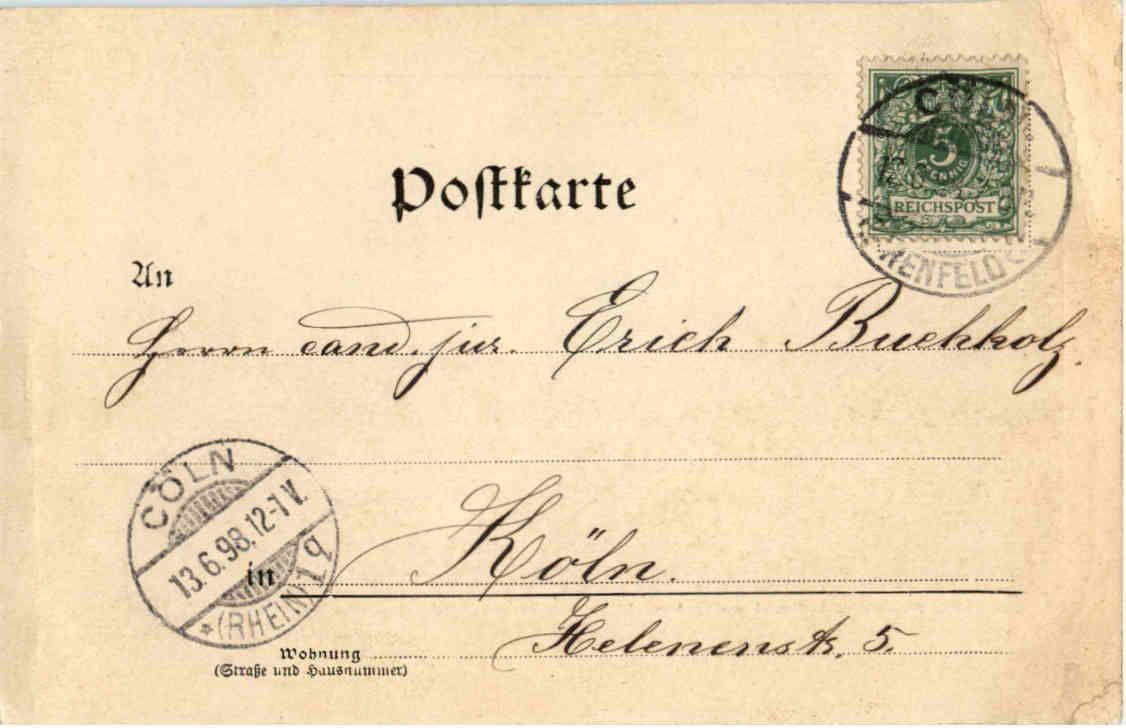 5
PFENNIG
REICHSPOST
Postkarte
An
Herrn cand. jur. Erich Buchholz.
CÖLN
13.6.98.12-1V.
*(RHEIN)1q
in Köln.
Helenenstr. 5.
Wohnung
(Straße und Hausnummer)